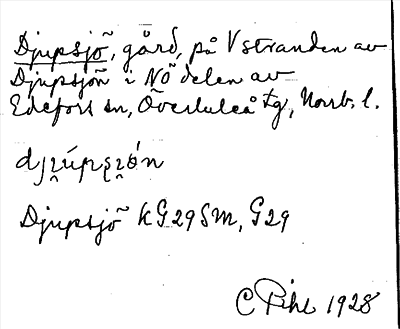 Djupsjö, gård, på V stranden av
Djupsjön i NÖ delen av
Edefors sn, Överluleå tg, Norrb. l.
Djupsjö KG29SM, G29
C Pihl 1928